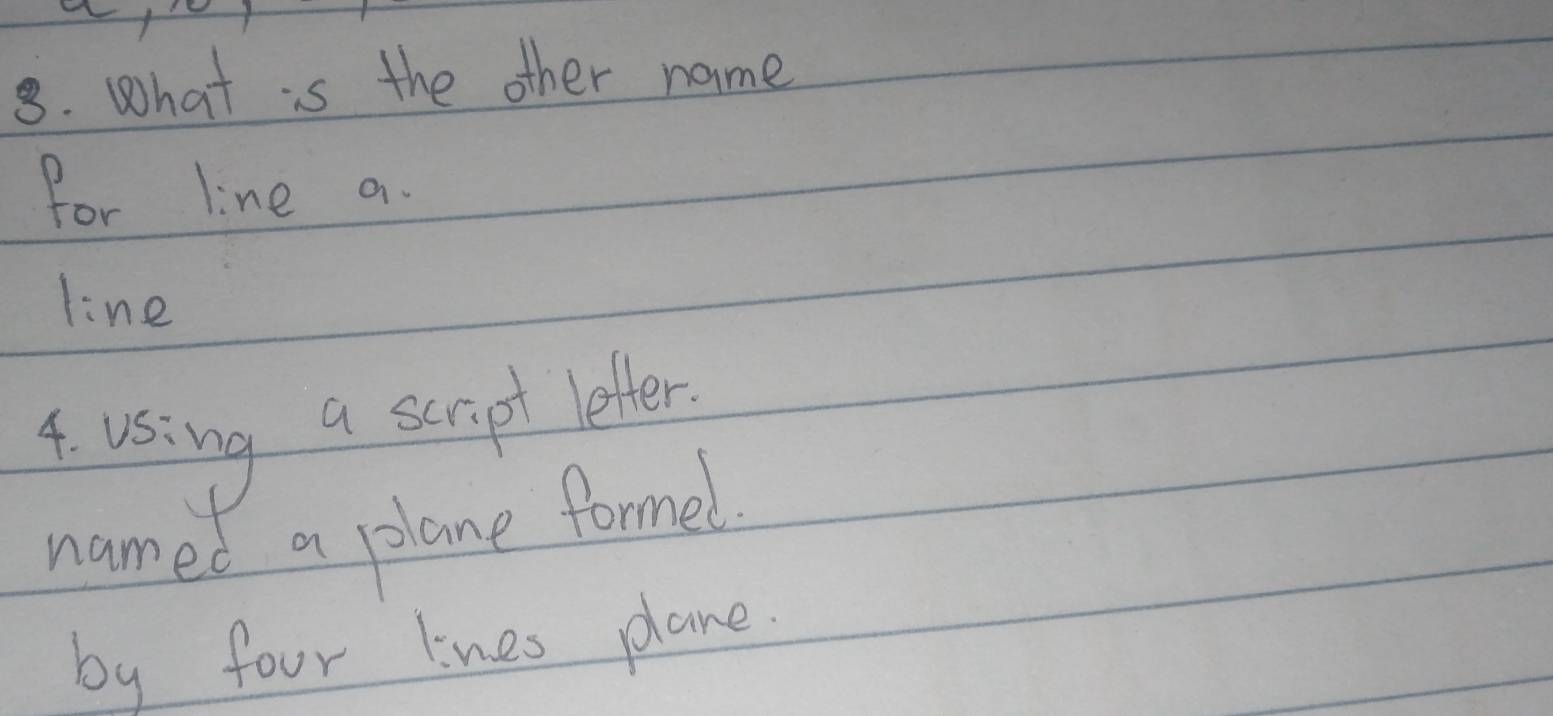 3. What is the other name
for line a.
line
4. Using a script letter.
named a plane formed.
by four lines plane.